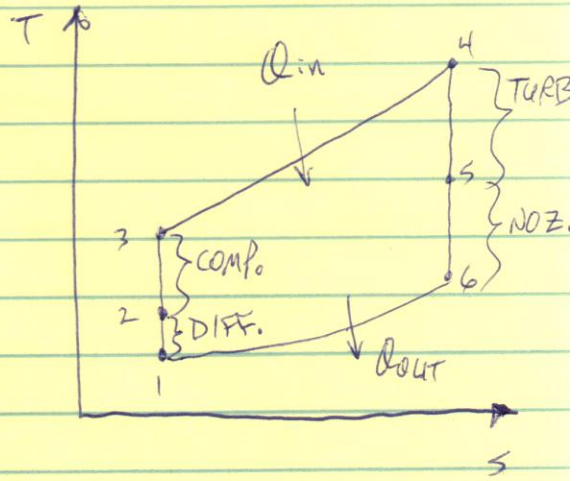 T
4
Qin
TURB
5
3
NOZ.
COMP.
6
2
DIFF.
QOUT
1
S